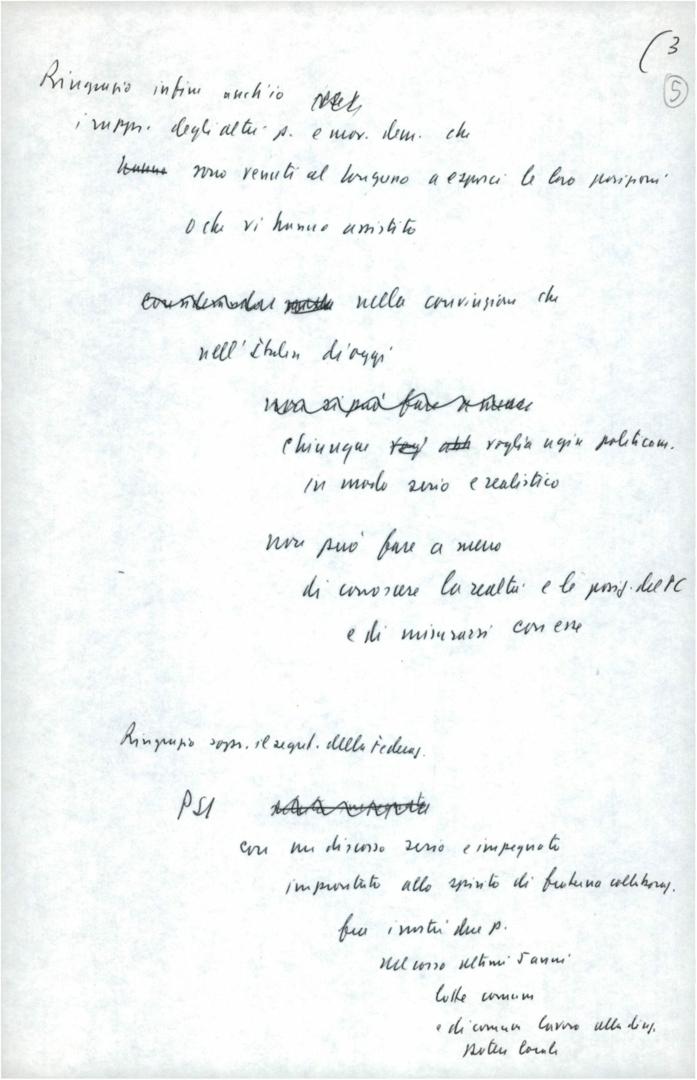 (3
5
Ringrazio infine anch'io
i rappr. degli altri p. e mov. dem. che
hanno sono venuti al congresso a esporci le loro posizioni
o che vi hanno assistito
nella convinzione che
nell'Italia di oggi
non si può fare a meno
chiunque voglia agire politicam.
in modo serio e realistico
non può fare a meno
di conoscere la realtà e le posiz. del PC
e di misurarsi con esse
Ringrazio sopr. il segret. della Federaz.
PSI
con un discorso serio e impegnato
improntato allo spirito di fraterna collaboraz.
fra i nostri due p.
nel corso ultimi 5 anni
lotte comuni
e di comune lavoro alla direz.
potere locale